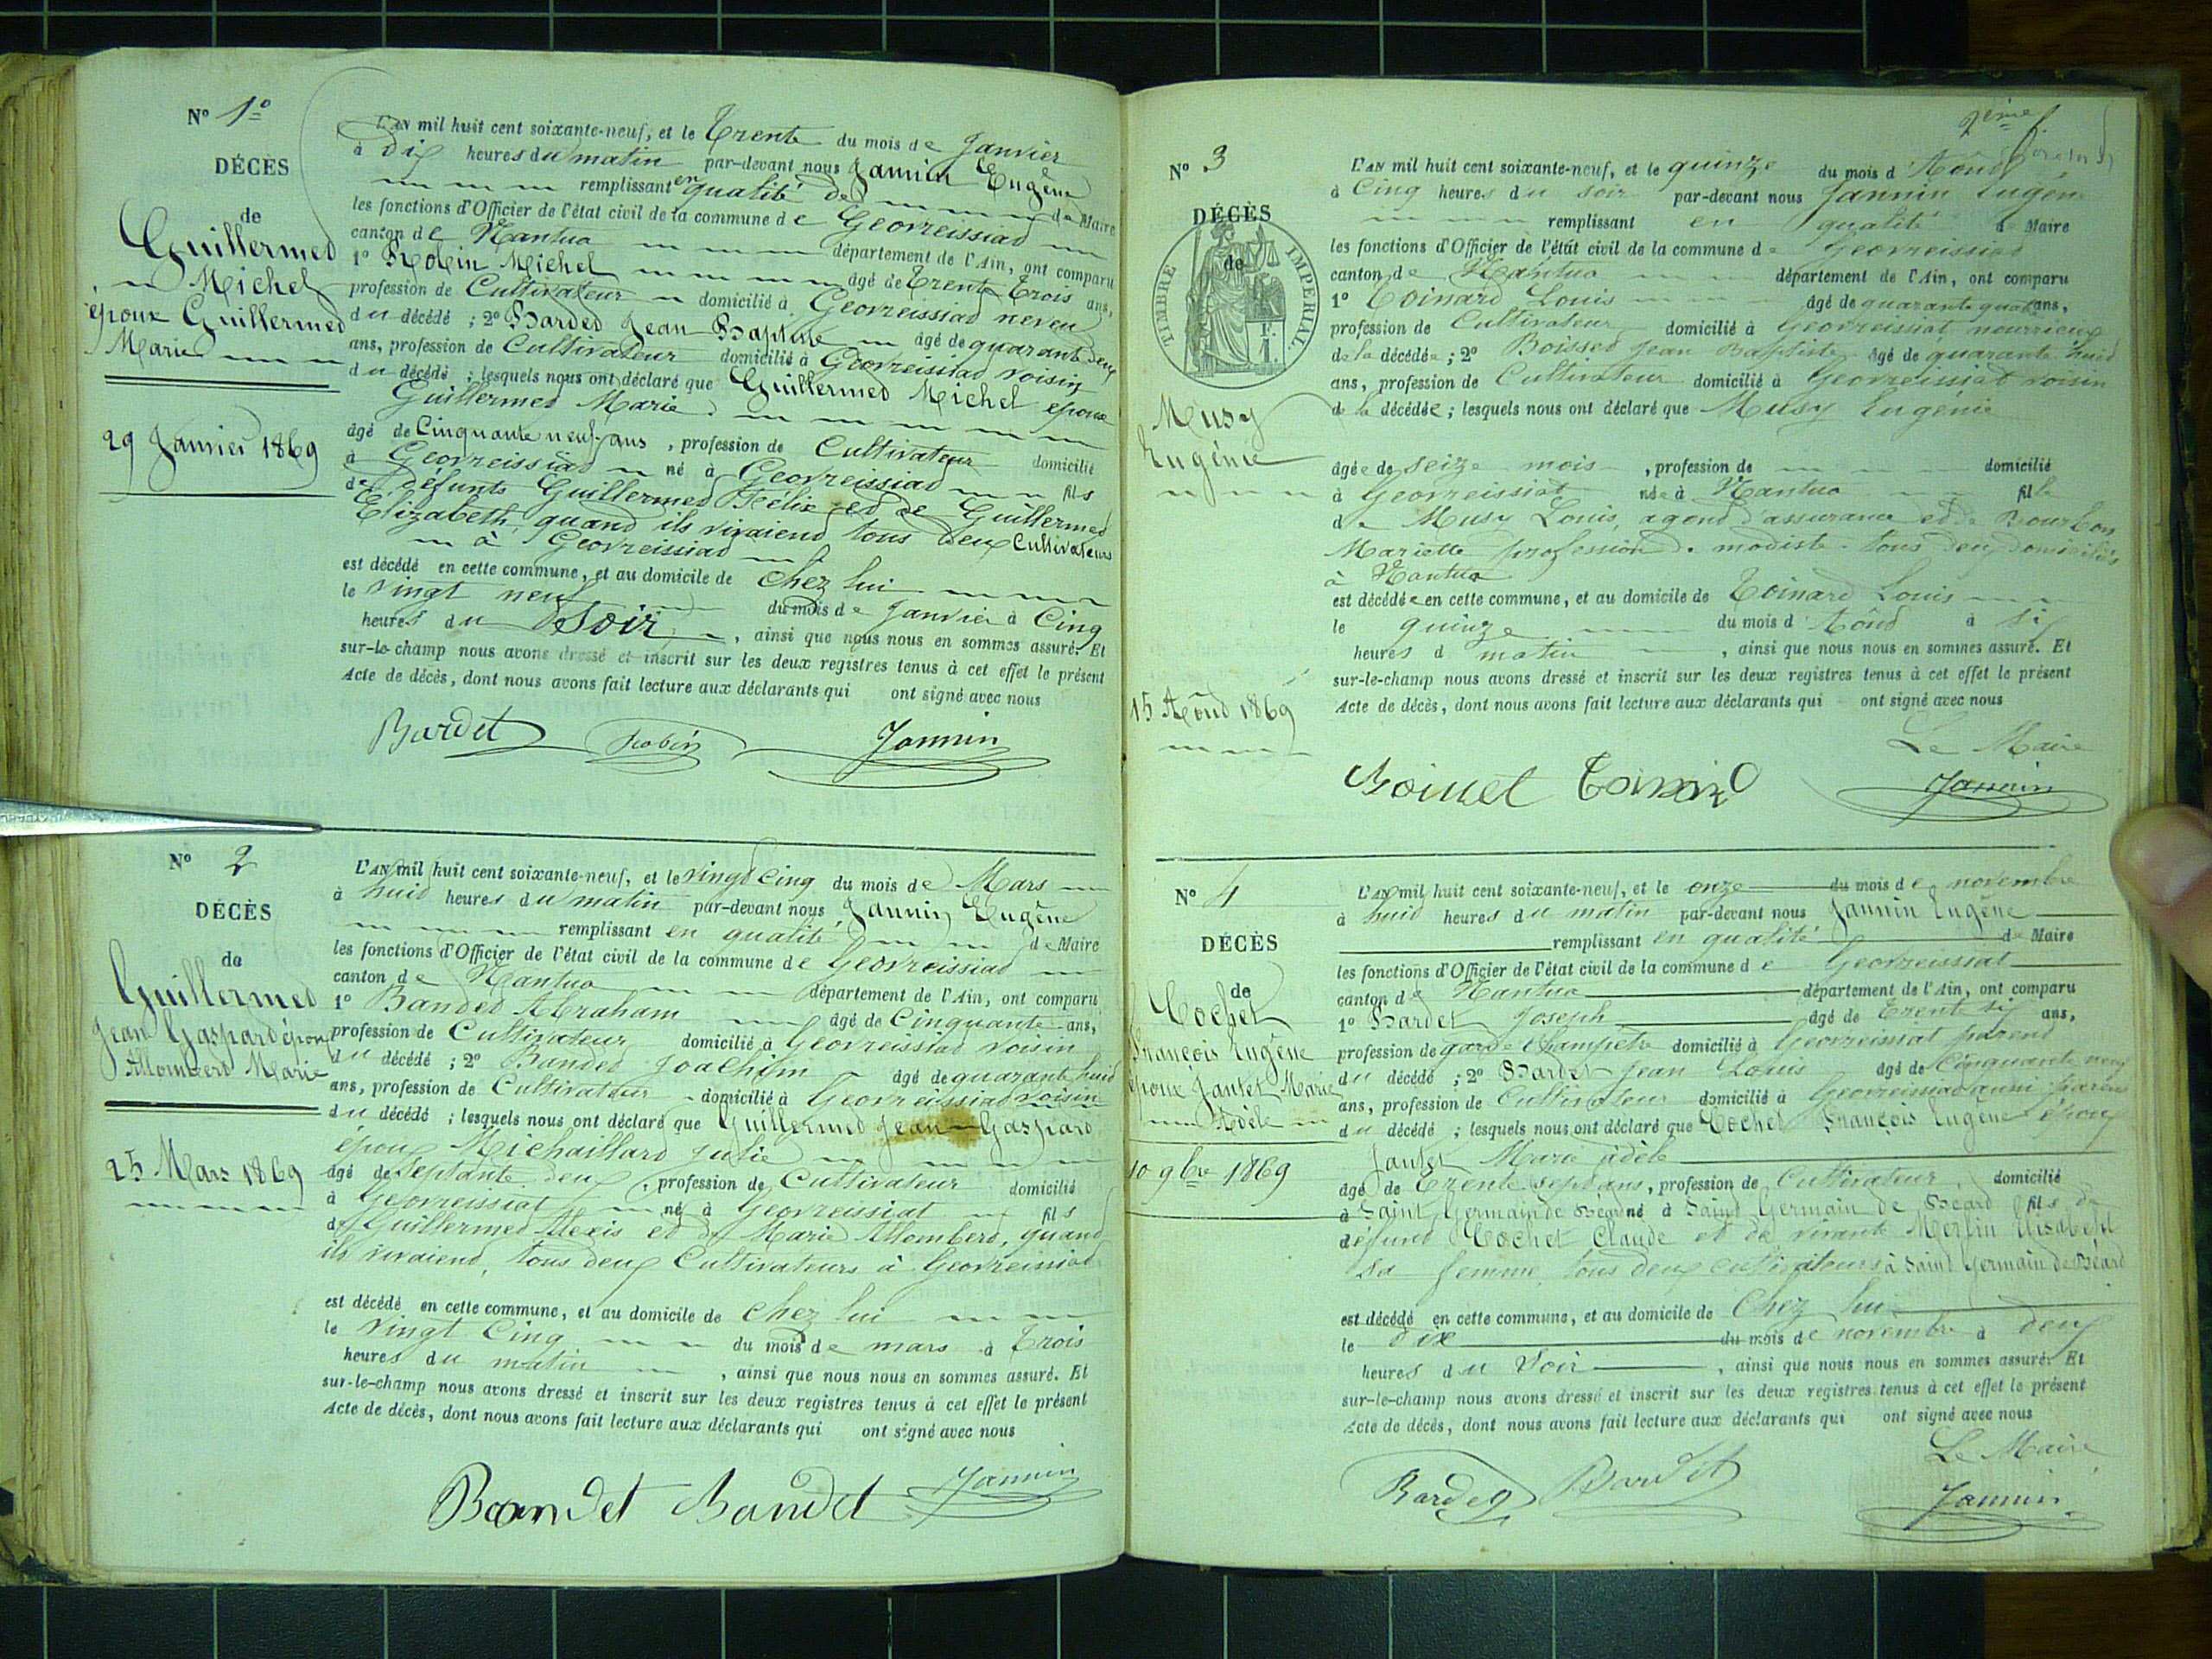 N° 1°
DÉCÈS
de
Guillermet
Michel
époux Guillermet
Marie
29 Janvier 1869
L'AN mil huit cent soixante-neuf, et le Trente du mois de Janvier
à dix heures du matin par-devant nous Jannin Eugène
remplissant en qualité de de Maire
les fonctions d'Officier de l'état civil de la commune de Geovreissiat
canton de Nantua département de l'Ain, ont comparu
1° Robin Michel âgé de Trente Trois ans,
profession de Cultivateur domicilié à Geovreissiat neveu
du décédé ; 2° Bardet Jean Baptiste âgé de quarante deux
ans, profession de Cultivateur domicilié à Geovreissiat voisin
du décédé ; lesquels nous ont déclaré que Guillermet Michel époux
Guillermet Marie
âgé de Cinquante neuf ans, profession de Cultivateur domicilié
à Geovreissiat né à Geovreissiat fils
de défunts Guillermet Félix et de Guillermet
Élizabeth, quand ils vivaient tous deux Cultivateurs
à Geovreissiat
est décédé en cette commune, et au domicile de chez lui
le vingt neuf du mois de Janvier à Cinq
heures du Soir, ainsi que nous nous en sommes assuré. Et
sur-le-champ nous avons dressé et inscrit sur les deux registres tenus à cet effet le présent
Acte de décès, dont nous avons fait lecture aux déclarants qui ont signé avec nous
Bardet Robin Jannin
N° 2
DÉCÈS
de
Guillermet
Jean Gaspard époux
Allombert Marie
25 Mars 1869
L'AN mil huit cent soixante-neuf, et le vingt Cinq du mois de Mars
à huit heures du matin par-devant nous Jannin Eugène
remplissant en qualité de Maire
les fonctions d'Officier de l'état civil de la commune de Geovreissiat
canton de Nantua département de l'Ain, ont comparu
1° Bandet Abraham âgé de Cinquante ans,
profession de Cultivateur domicilié à Geovreissiat voisin
du décédé ; 2° Bandet Joachim âgé de quarante huit
ans, profession de Cultivateur domicilié à Geovreissiat voisin
du décédé ; lesquels nous ont déclaré que Guillermet Jean Gaspard
époux Michaillard Julie
âgé de Septante deux, profession de Cultivateur domicilié
à Geovreissiat né à Geovreissiat fils
de Guillermet Alexis et de Marie Allombert, quand
ils vivaient, tous deux Cultivateurs à Geovreissiat
est décédé en cette commune, et au domicile de chez lui
le vingt Cinq du mois de mars à Trois
heures du matin, ainsi que nous nous en sommes assuré. Et
sur-le-champ nous avons dressé et inscrit sur les deux registres tenus à cet effet le présent
Acte de décès, dont nous avons fait lecture aux déclarants qui ont signé avec nous
Bandet Bandet Jannin
2ème f.
N° 3
DÉCÈS
de
TIMBRE IMPÉRIAL
1 F.
Musy
Eugénie
15 Août 1869
L'AN mil huit cent soixante-neuf, et le quinze du mois d'Août
à Cinq heures du soir par-devant nous Jannin Eugène
remplissant en qualité de Maire
les fonctions d'Officier de l'état civil de la commune de Geovreissiat
canton de Nantua département de l'Ain, ont comparu
1° Toinard Louis âgé de quarante quatre ans,
profession de Cultivateur domicilié à Geovreissiat nourricier
de la décédée ; 2° Boisset Jean Baptiste âgé de quarante huit
ans, profession de Cultivateur domicilié à Geovreissiat voisin
de la décédée ; lesquels nous ont déclaré que Musy Eugénie
âgée de seize mois, profession de domicilié
à Geovreissiat née à Nantua fille
de Musy Louis, agent d'assurance et de Bourbon
Mariette profession de modiste tous deux domiciliés
à Nantua
est décédée en cette commune, et au domicile de Toinard Louis
le quinze du mois d'Août à six
heures d matin, ainsi que nous nous en sommes assuré. Et
sur-le-champ nous avons dressé et inscrit sur les deux registres tenus à cet effet le présent
Acte de décès, dont nous avons fait lecture aux déclarants qui ont signé avec nous
Le Maire
Boisset Toinard Jannin
N° 4
DÉCÈS
de
Cochet
François Eugène
époux Jantet Marie
Adèle
10 9bre 1869
L'AN mil huit cent soixante-neuf, et le onze du mois de novembre
à huit heures du matin par-devant nous Jannin Eugène
remplissant en qualité de Maire
les fonctions d'Officier de l'état civil de la commune de Geovreissiat
canton de Nantua département de l'Ain, ont comparu
1° Bardet Joseph âgé de Trente six ans,
profession de garde Champetre domicilié à Geovreissiat parent
du décédé ; 2° Bardet Jean Louis âgé de Cinquante neuf
ans, profession de Cultivateur domicilié à Geovreissiat aussi parent
du décédé ; lesquels nous ont déclaré que Cochet François Eugène époux
Jantet Marie adèle
âgé de Trente sept ans, profession de Cultivateur, domicilié
à Saint Germain de Béard né à Saint Germain de Béard fils de
défunt Cochet Claude et de vivante Merlin Elisabeth
sa femme, tous deux cultivateurs à Saint Germain de Béard
est décédé en cette commune, et au domicile de Chez lui
le dix du mois de novembre à deux
heures du Soir, ainsi que nous nous en sommes assuré. Et
sur-le-champ nous avons dressé et inscrit sur les deux registres tenus à cet effet le présent
Acte de décès, dont nous avons fait lecture aux déclarants qui ont signé avec nous
Le Maire
Bardet Bardet Jannin